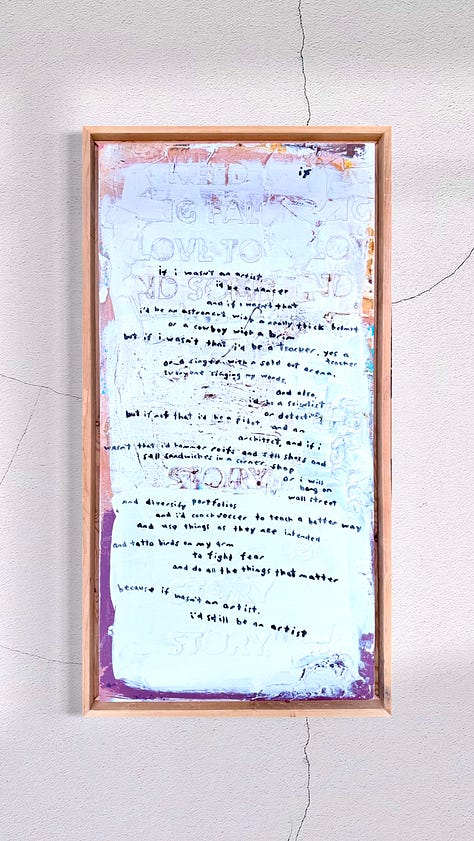 if
NEED
NG FAI
LOVE TO
LO
ND SO
END
if i wasn't an artist
i'd be a dancer
and if i wasn't that
i'd be an astronaut with a really thick helmet
or a cowboy with a brim
but if i wasn't that i'd be a teacher. yes a
teacher
or a singer with a sold out arena.
everyone singing my words.
and also,
i'd be a scientist
or detective
but if not that i'd be a pilot, and an
architect, and if i
wasn't that i'd hammer roofs and sell shoes and
sell sandwiches in a corner shop
or i will
hang on
wall street
STORY
and diversify portfolios
and i'd coach soccer to teach a better way
and use things as they are intended
and tatto birds on my arm
to fight fear
and do all the things that matter
STORY
because if wasn't an artist.
i'd still be an artist
STORY